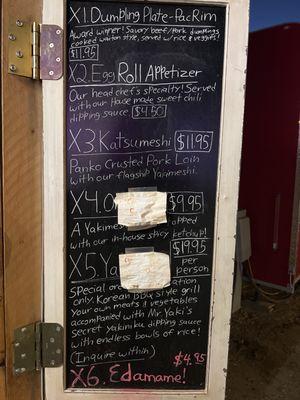 X1. Dumpling Plate-PacRim
Award winner! Savory beef/Pork dumplings
cooked wonton style, served w/rice & veggies!
$11.95
X2. Egg Roll Appetizer
Our head chef's specialty! Served
with our House made sweet chili
dipping sauce $4.50
X3. Katsumeshi $11.95
Panko Crusted Pork Loin
with our flagship Yakimeshi.
X4. $9.95
A Yakimes
with our in-house spicy ketchup!
X5. Ya $19.95
per
person
Special
only. Korean BBQ style grill
your own meats & vegetables
accompanied with Mr. Yaki's
Secret Yakiniku dipping sauce
with endless bowls of rice!
(Inquire within)
$4.95
X6. Edamame!